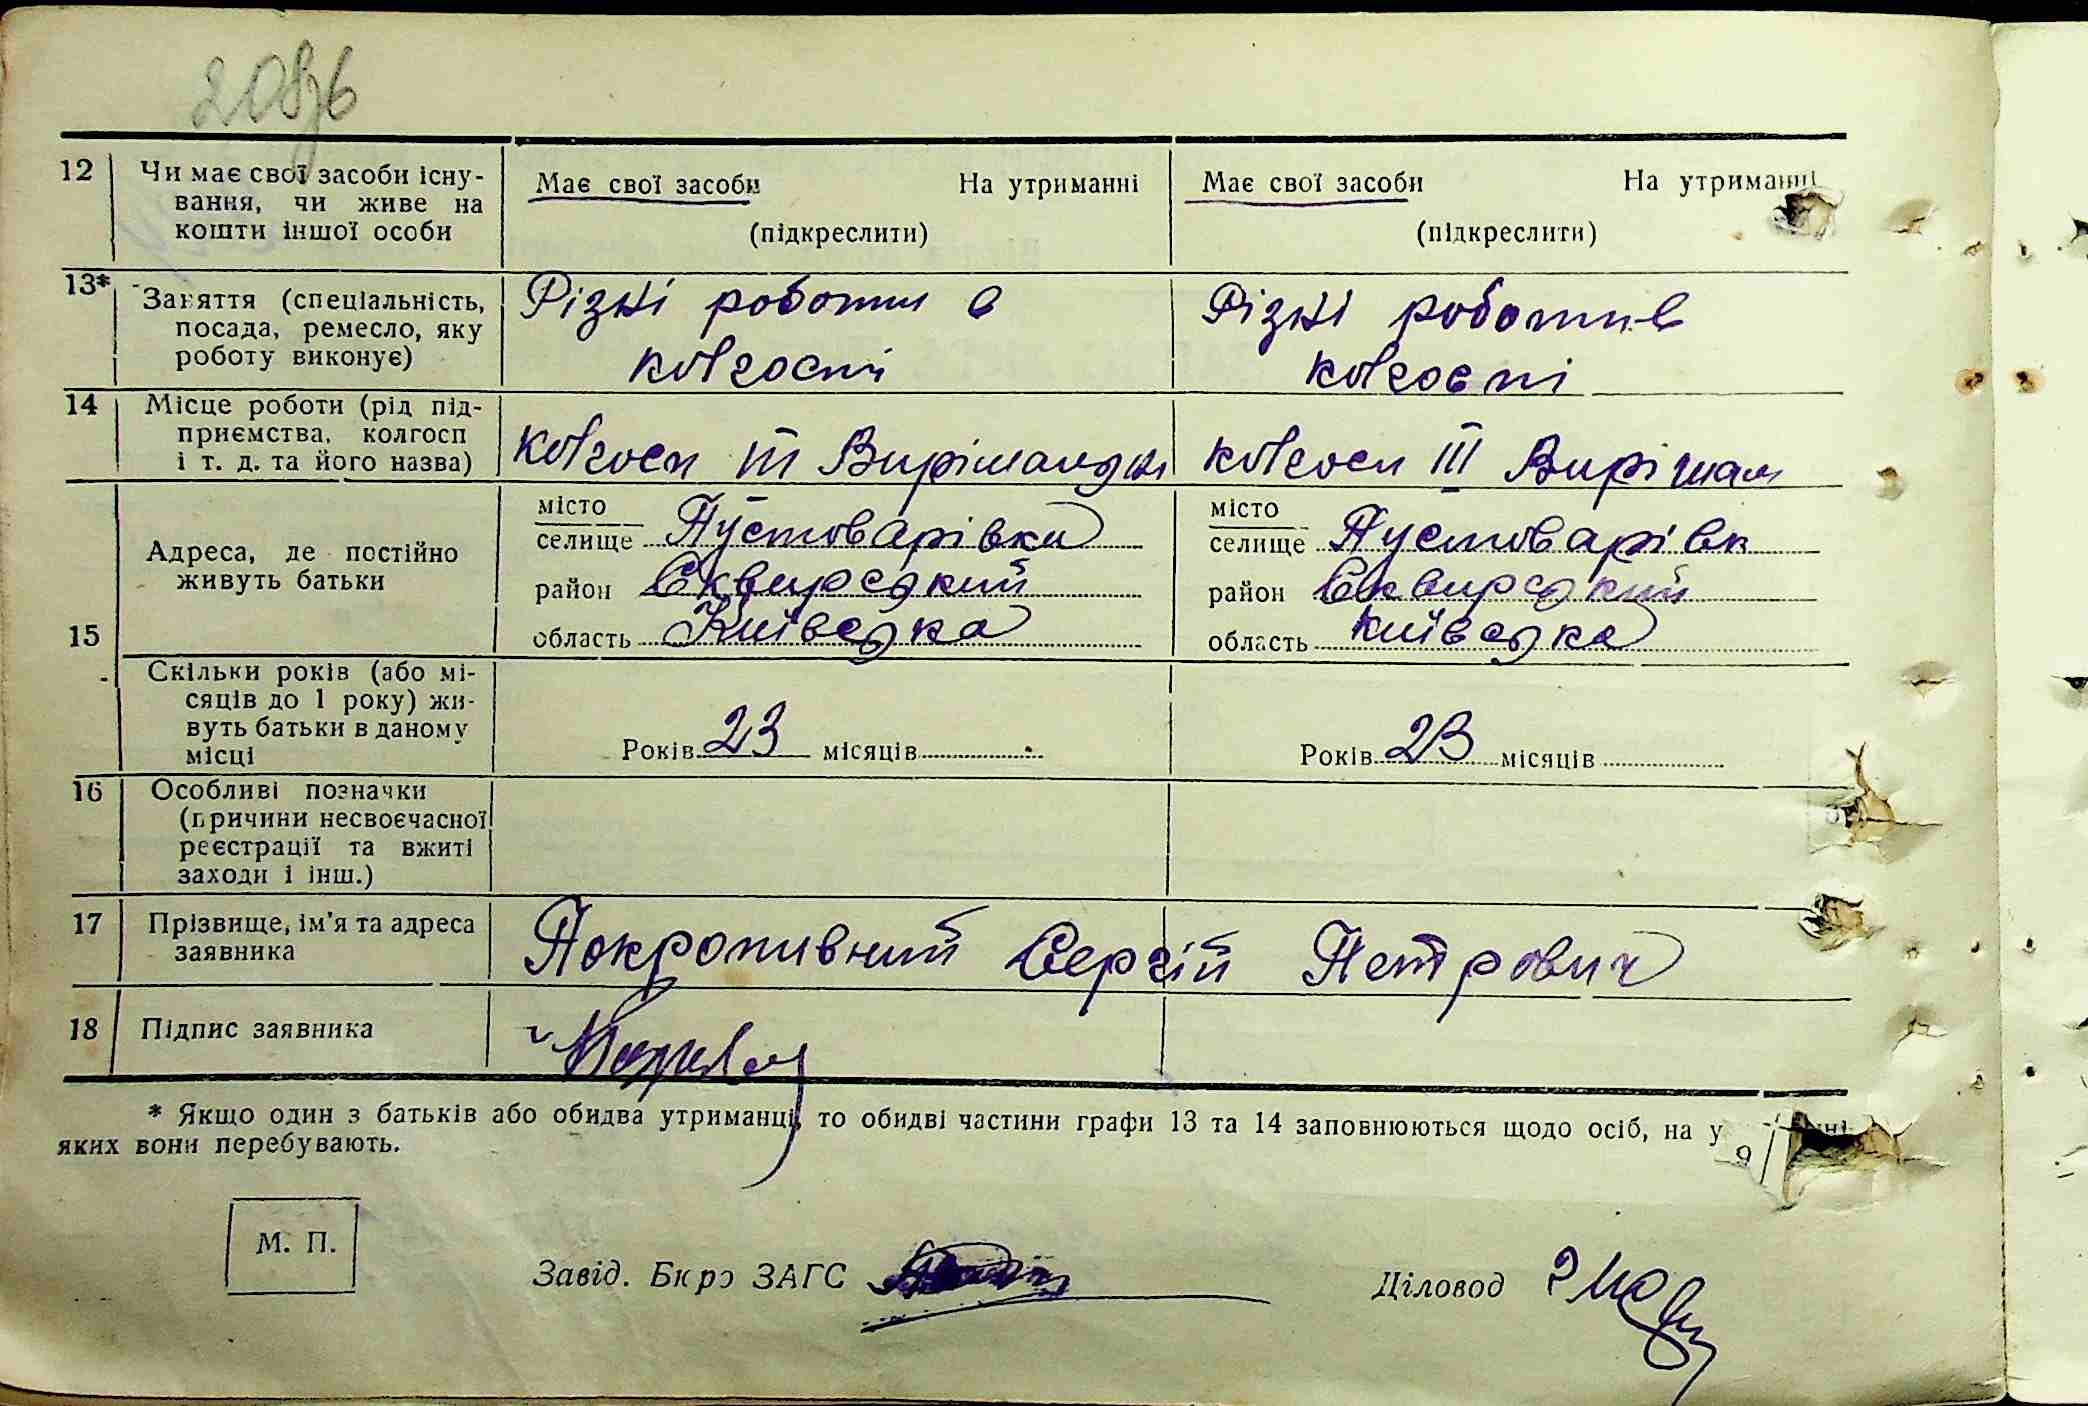 12 Чи має свої засоби існу-
вання, чи живе на
кошти іншої особи
Має свої засоби На утриманні
(підкреслити)
Має свої засоби На утриманні
(підкреслити)
13* Заняття (спеціальність,
посада, ремесло, яку
роботу виконує)
Різні роботи в
колгоспі
Різні роботи в
колгоспі
14 Місце роботи (рід під-
приємства, колгосп
і т. д. та його назва)
колгосп III Вирішальн
колгосп III Виріша
15 Адреса, де постійно
живуть батьки
місто
селище Пустоварівка
район Сквирський
область Київська
місто
селище Пустоварівк
район Сквирський
область Київська
Скільки років (або мі-
сяців до 1 року) жи-
вуть батьки в даному
місці
Років 23 місяців
Років 23 місяців
16 Особливі позначки
(причини несвоєчасної
реєстрації та вжиті
заходи і інш.)
17 Прізвище, ім'я та адреса
заявника
Покропивний Сергій Петрович
18 Підпис заявника
* Якщо один з батьків або обидва утриманці, то обидві частини графи 13 та 14 заповнюються щодо осіб, на у
яких вони перебувають.
9
М. П.
Завід. Бюро ЗАГС
Діловод